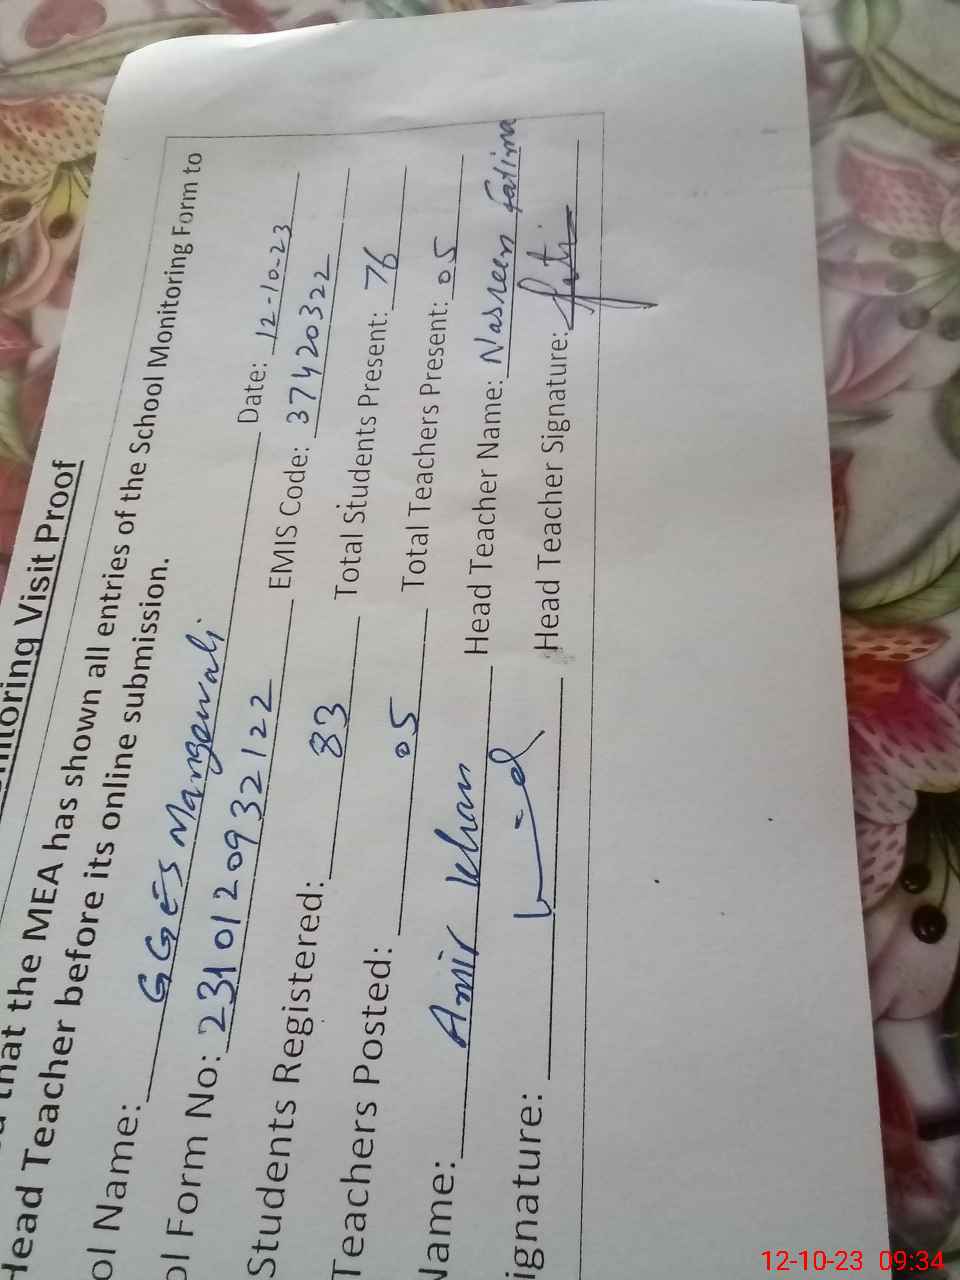 nitoring Visit Proof
that the MEA has shown all entries of the School Monitoring Form to
Head Teacher before its online submission.
ol Name: GGES Mangowali Date: 12-10-23
ol Form No: 2310120932122 EMIS Code: 37420322
Students Registered: 83 Total Students Present: 76
Teachers Posted: 05 Total Teachers Present: 05
Name: Amir Khan Head Teacher Name: Nasreen Fatima
ignature: Head Teacher Signature:
12-10-23 09:34